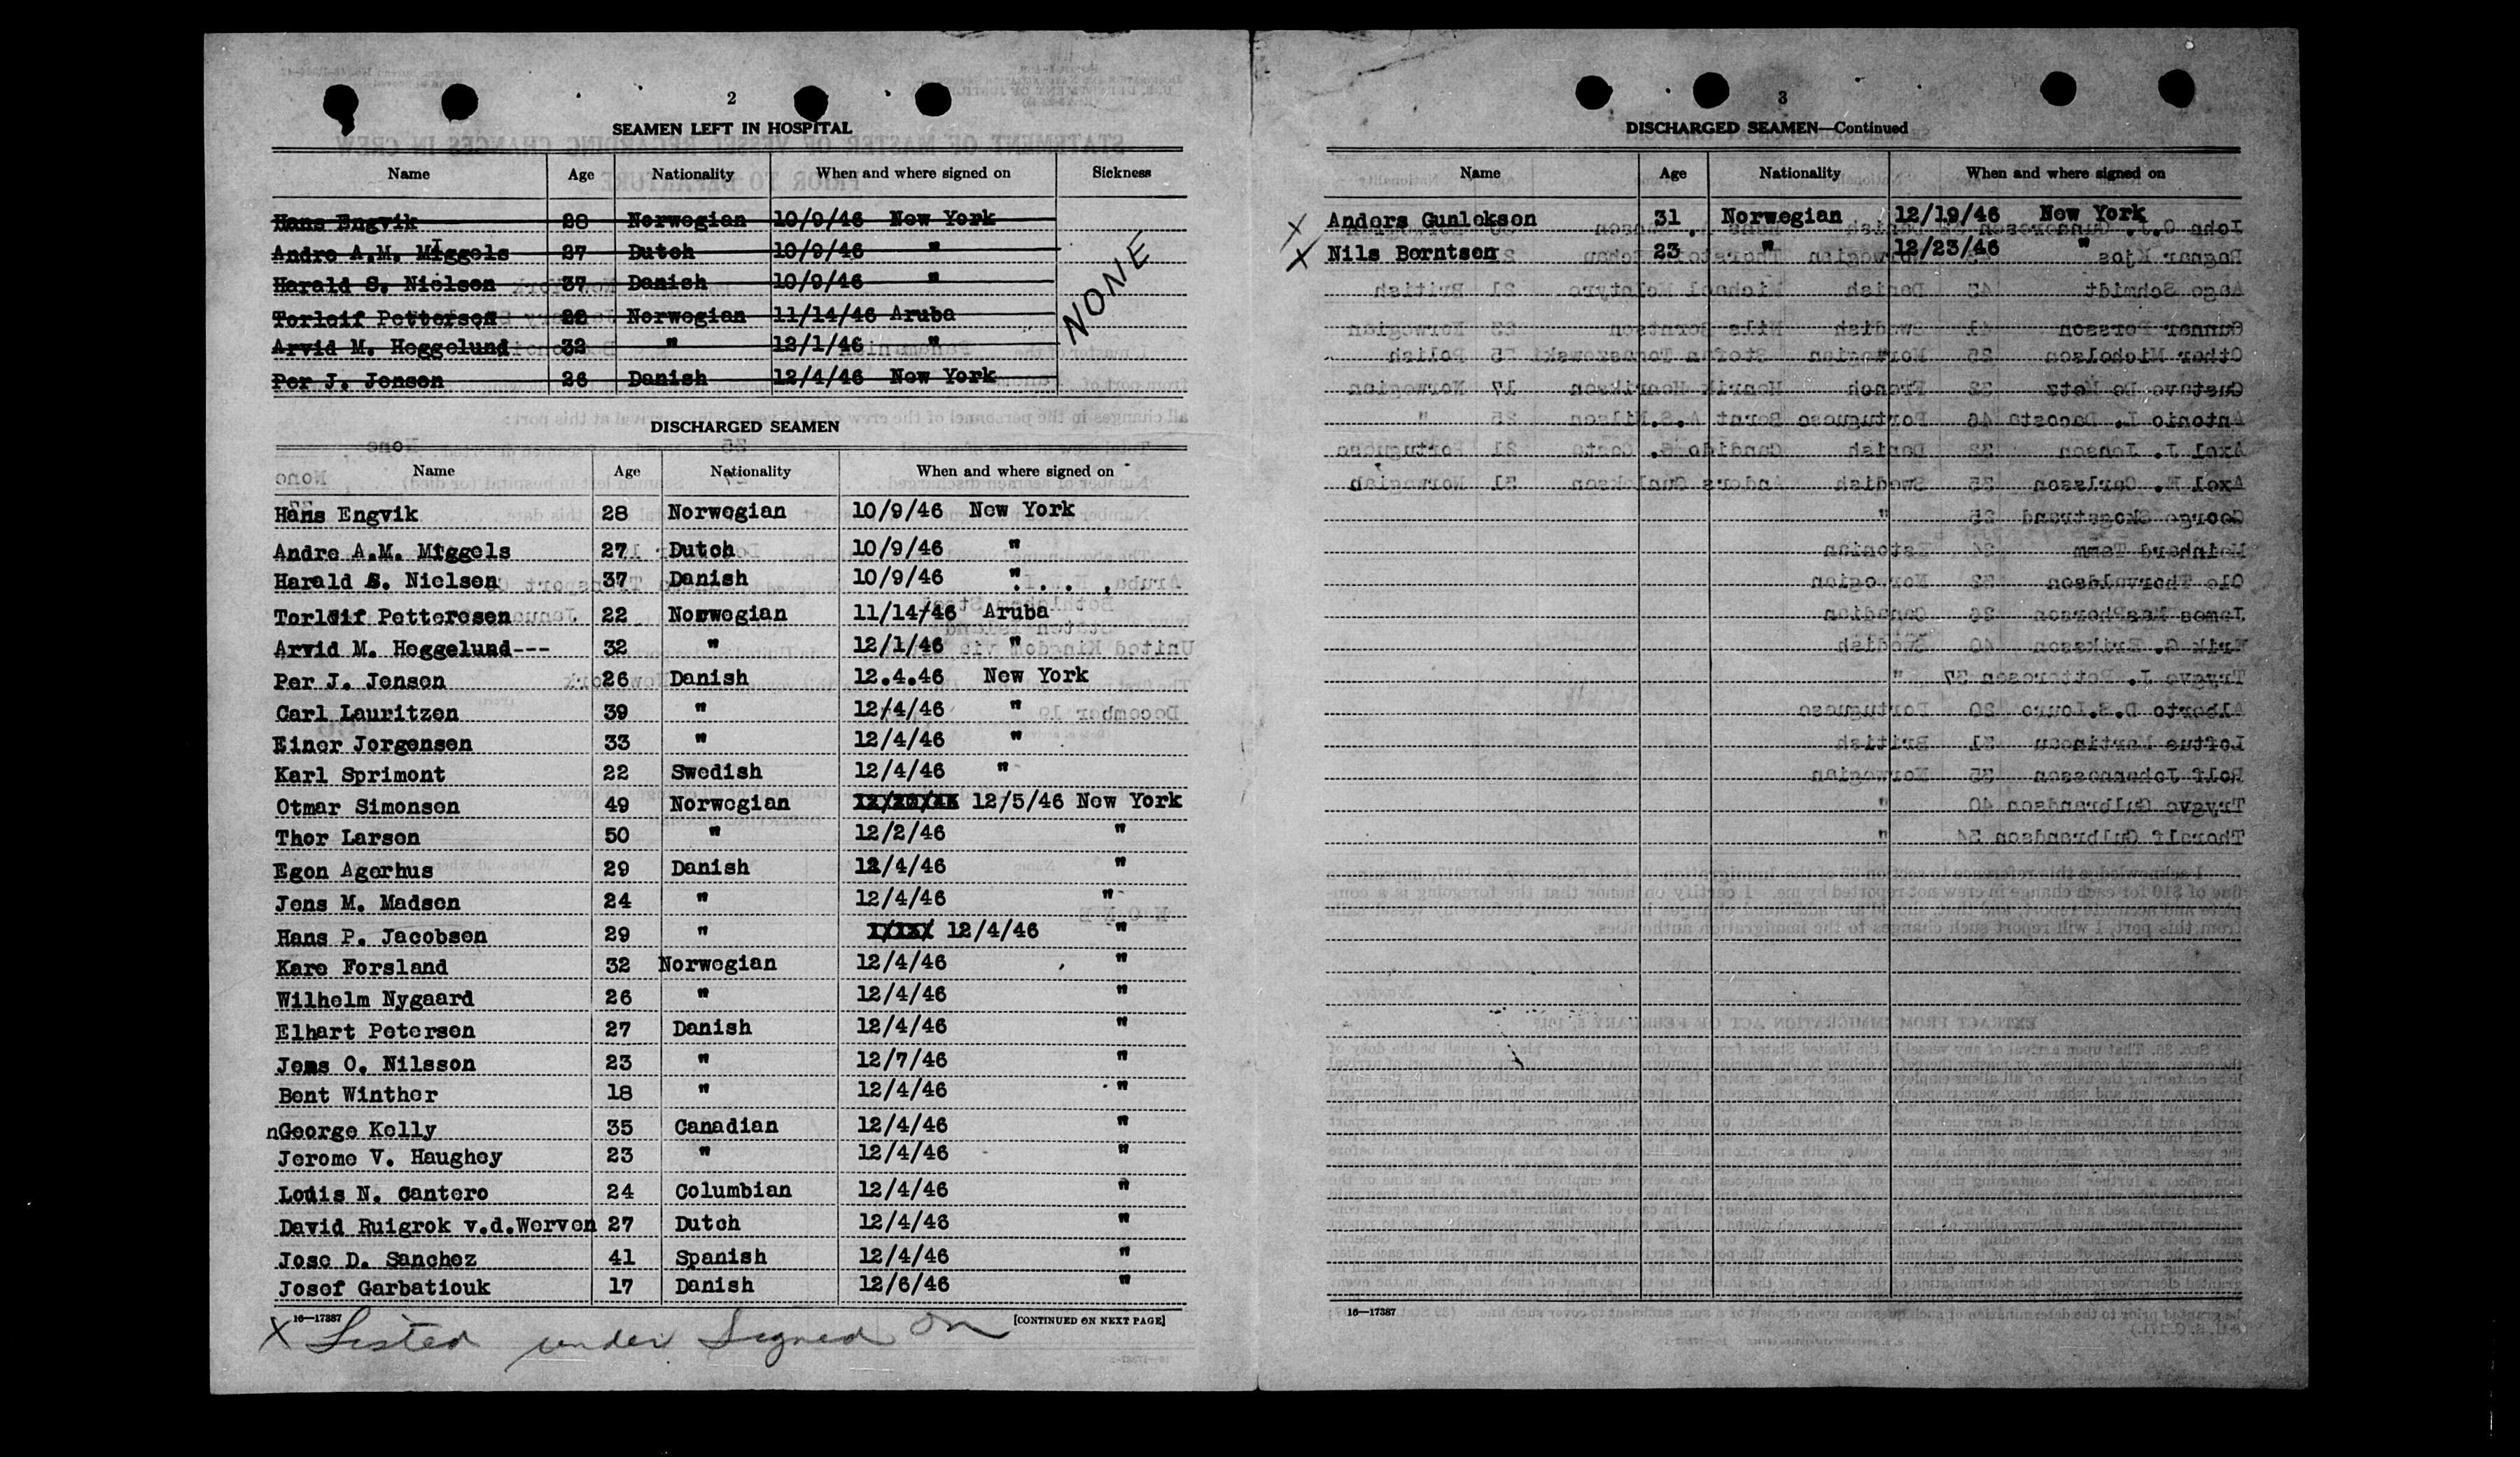 2
SEAMEN LEFT IN HOSPITAL
Name Age Nationality When and where signed on Sickness
Hans Engvik 28 Norwegian 10/9/46 New York
Andre A.M. Miggels 27 Dutch 10/9/46 "
Harald S. Nielsen 37 Danish 10/9/46 "
Torleif Pettersen 22 Norwegian 11/14/46 Aruba
Arvid M. Heggelund 32 " 12/1/46 "
Per J. Jensen 26 Danish 12/4/46 New York
NONE
DISCHARGED SEAMEN
Name Age Nationality When and where signed on
Hans Engvik 28 Norwegian 10/9/46 New York
Andre A.M. Miggels 27 Dutch 10/9/46 "
Harald S. Nielsen 37 Danish 10/9/46 "
Torleif Pettersen 22 Norwegian 11/14/46 Aruba
Arvid M. Heggelund--- 32 " 12/1/46 "
Per J. Jensen 26 Danish 12.4.46 New York
Carl Lauritzen 39 " 12/4/46 "
Einer Jorgensen 33 " 12/4/46 "
Karl Sprimont 22 Swedish 12/4/46 "
Otmar Simonsen 49 Norwegian 12/5/46 New York
Thor Larsen 50 " 12/2/46 "
Egon Agerhus 29 Danish 12/4/46 "
Jens M. Madsen 24 " 12/4/46 "
Hans P. Jacobsen 29 " 12/4/46 "
Kare Forsland 32 Norwegian 12/4/46 "
Wilhelm Nygaard 26 " 12/4/46 "
Elhart Petersen 27 Danish 12/4/46 "
Jens O. Nilsson 23 " 12/7/46 "
Bent Winther 18 " 12/4/46 "
nGeorge Kelly 35 Canadian 12/4/46 "
Jerome V. Haughey 23 " 12/4/46 "
Louis N. Cantero 24 Columbian 12/4/46 "
David Ruigrok v.d.Werven 27 Dutch 12/4/46 "
Jose D. Sanchez 41 Spanish 12/4/46 "
Josef Garbatiouk 17 Danish 12/6/46 "
16—17387
[CONTINUED ON NEXT PAGE]
X Listed under Signed on
3
DISCHARGED SEAMEN—Continued
Name Age Nationality When and where signed on
X Anders Gunleksen 31 Norwegian 12/19/46 New York
X Nils Berntsen 23 " 12/23/46 "
16—17387